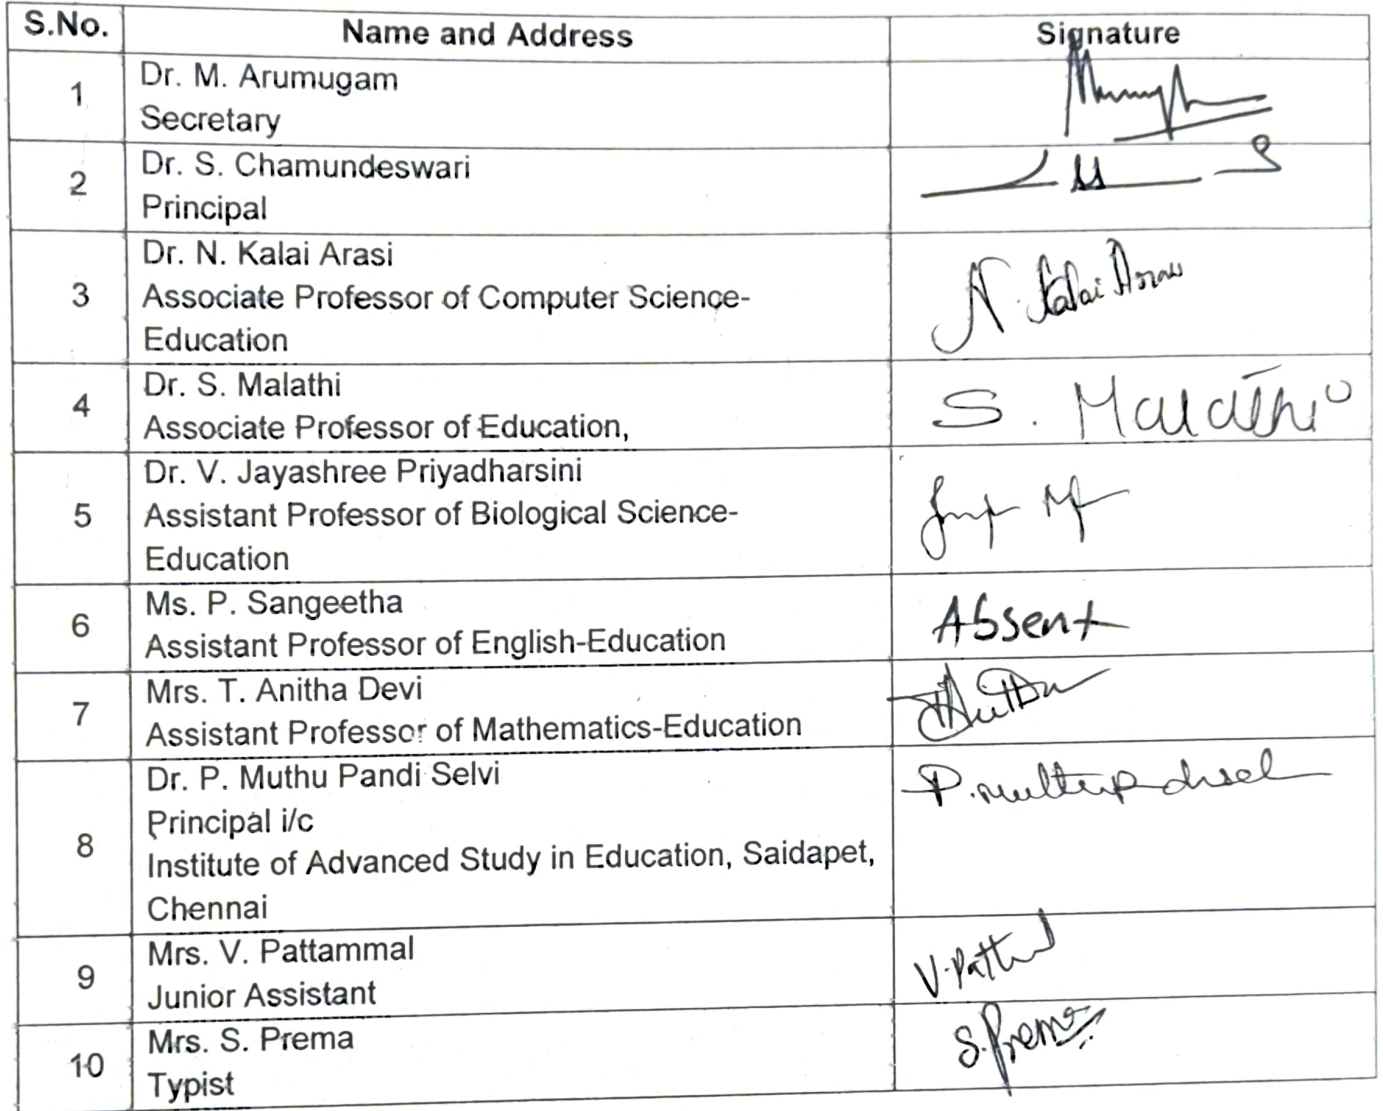 S.No. Name and Address Signature
1 Dr. M. Arumugam
Secretary
2 Dr. S. Chamundeswari
Principal
3 Dr. N. Kalai Arasi
Associate Professor of Computer Science-
Education
N. Kalai Arasi
4 Dr. S. Malathi
Associate Professor of Education,
S. Malathi
5 Dr. V. Jayashree Priyadharsini
Assistant Professor of Biological Science-
Education
6 Ms. P. Sangeetha
Assistant Professor of English-Education
Absent
7 Mrs. T. Anitha Devi
Assistant Professor of Mathematics-Education
8 Dr. P. Muthu Pandi Selvi
Principal i/c
Institute of Advanced Study in Education, Saidapet,
Chennai
9 Mrs. V. Pattammal
Junior Assistant
10 Mrs. S. Prema
Typist
S. Prema